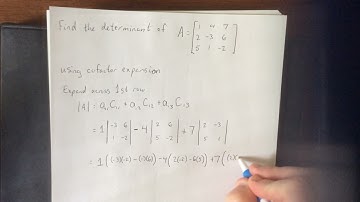 Find the determinant of A = [1 4 7
2 -3 6
5 1 -2]
using cofactor expansion
Expand across 1st row
|A| = a₁₁C₁₁ + a₁₂C₁₂ + a₁₃C₁₃
= 1 |-3 6; 1 -2| - 4 |2 6; 5 -2| + 7 |2 -3; 5 1|
= 1 ((-3)(-2) - (1)(6)) - 4 (2(-2) - 6(5)) + 7 (